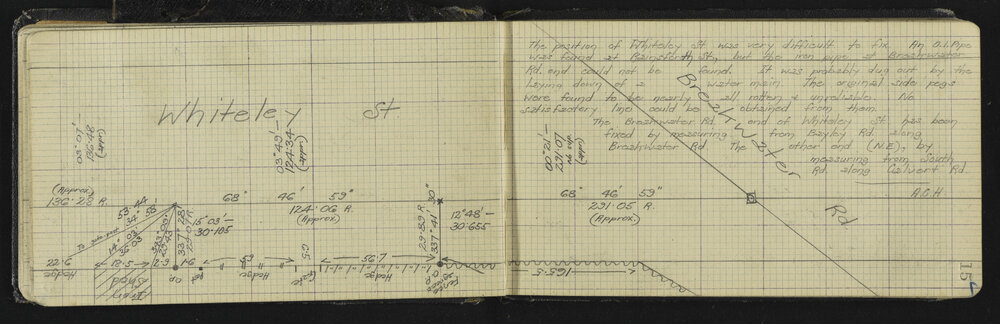 Whiteley St
03°07'—
136·48
(Appx)
03°49'—
124·34
(Appx)
(Approx)
136·28 R.
68° 46' 59"
124·06 R.
(Approx)
53 44
34° 58'
To gate post
15°03'—
30·105
337° 28'
29·89 R.
337° 41' 30"
12°48'—
30·655
22·6
Hedge
18·5
2·3
1·6
Shed
OP
Hedge
Gate
56·7
Hedge
Fence
The position of Whiteley St. was very difficult to fix. An O.I.Pipe
was found at Rainsforth St., but the iron pipe at Breakwater
Rd. end could not be found. It was probably dug out by the
laying down of a water main. The original side pegs
were found to be nearly all rotten & unreliable. No
satisfactory line could be obtained from them.
The Breakwater Rd. end of Whiteley St. has been
fixed by measuring from Bayley Rd. along
Breakwater Rd. The other end (N.E.), by
measuring from South
Rd. along Calvert Rd.
A.C.H.
Breakwater
Rd
00°21'
291·07
(Appx)
68° 46' 59"
291·05 R.
(Approx)
166·3
15